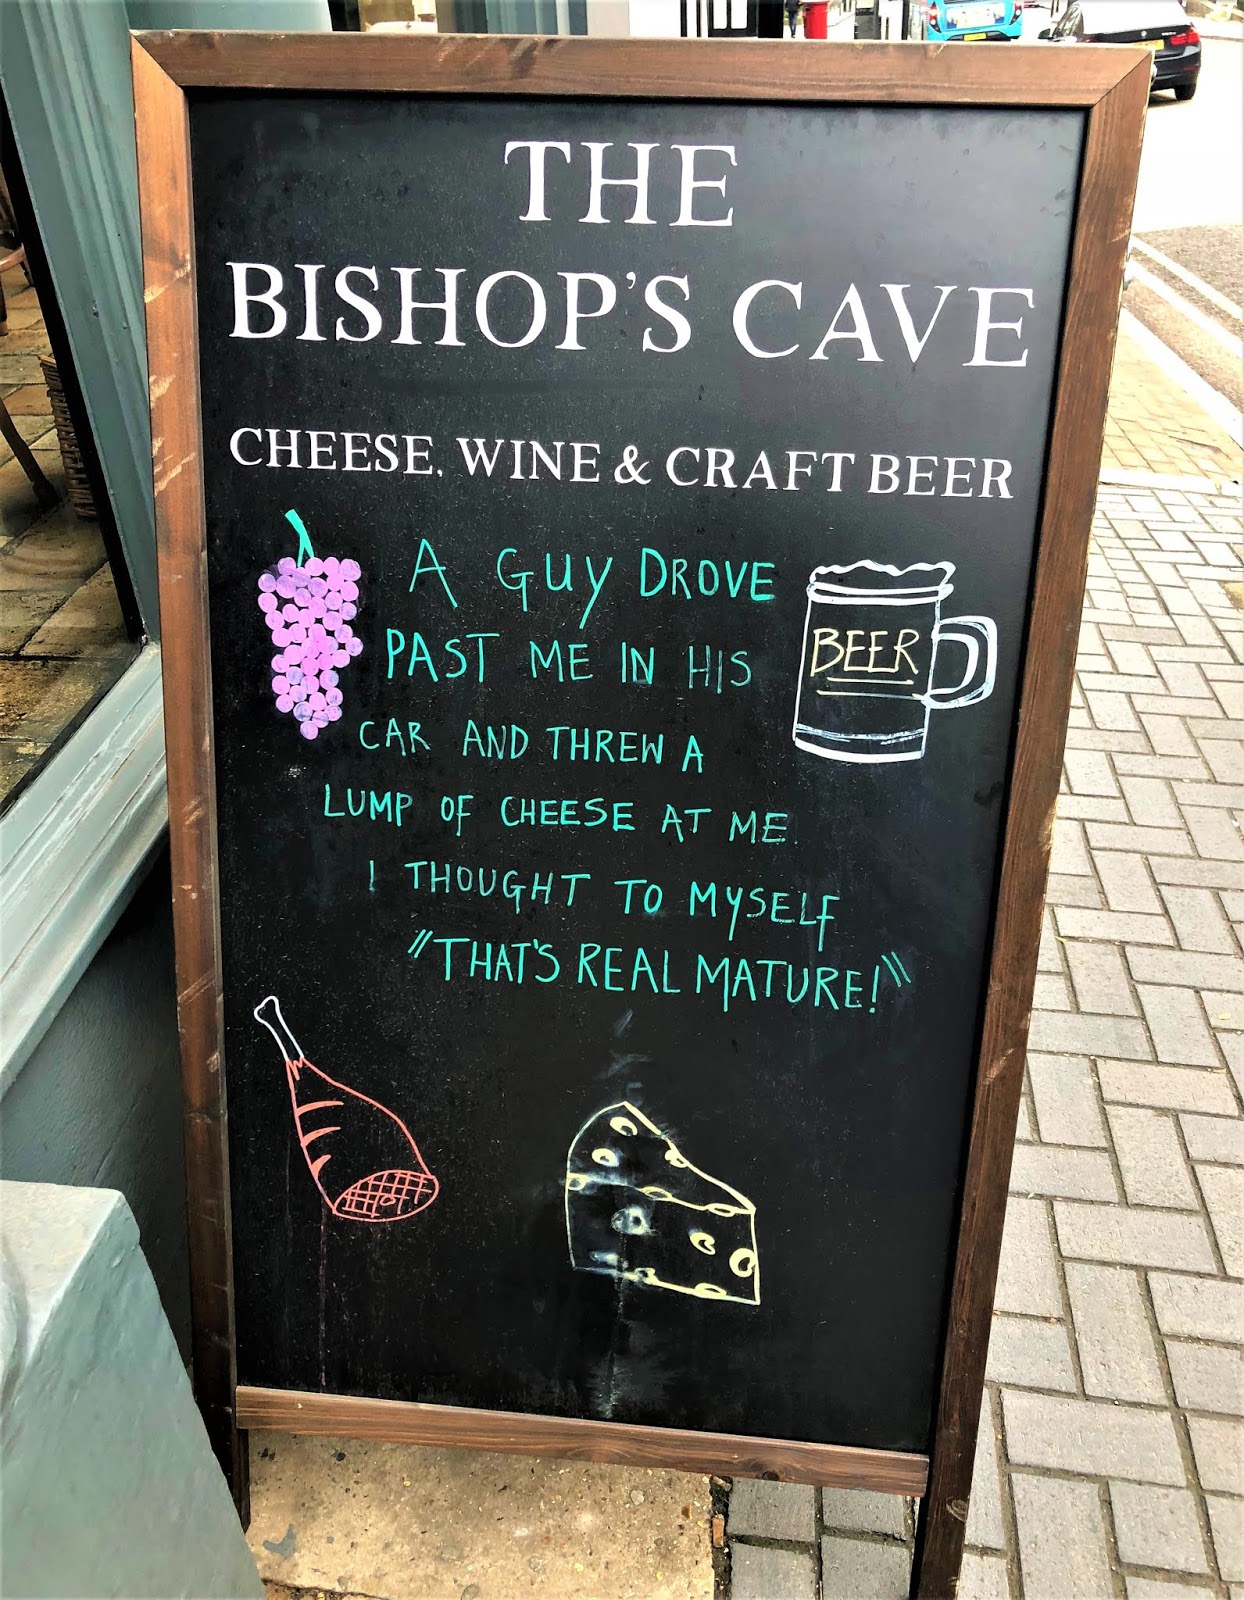 THE
BISHOP'S CAVE
CHEESE, WINE & CRAFT BEER
A GUY DROVE
PAST ME IN HIS
CAR AND THREW A
LUMP OF CHEESE AT ME.
I THOUGHT TO MYSELF
"THAT'S REAL MATURE!"
BEER